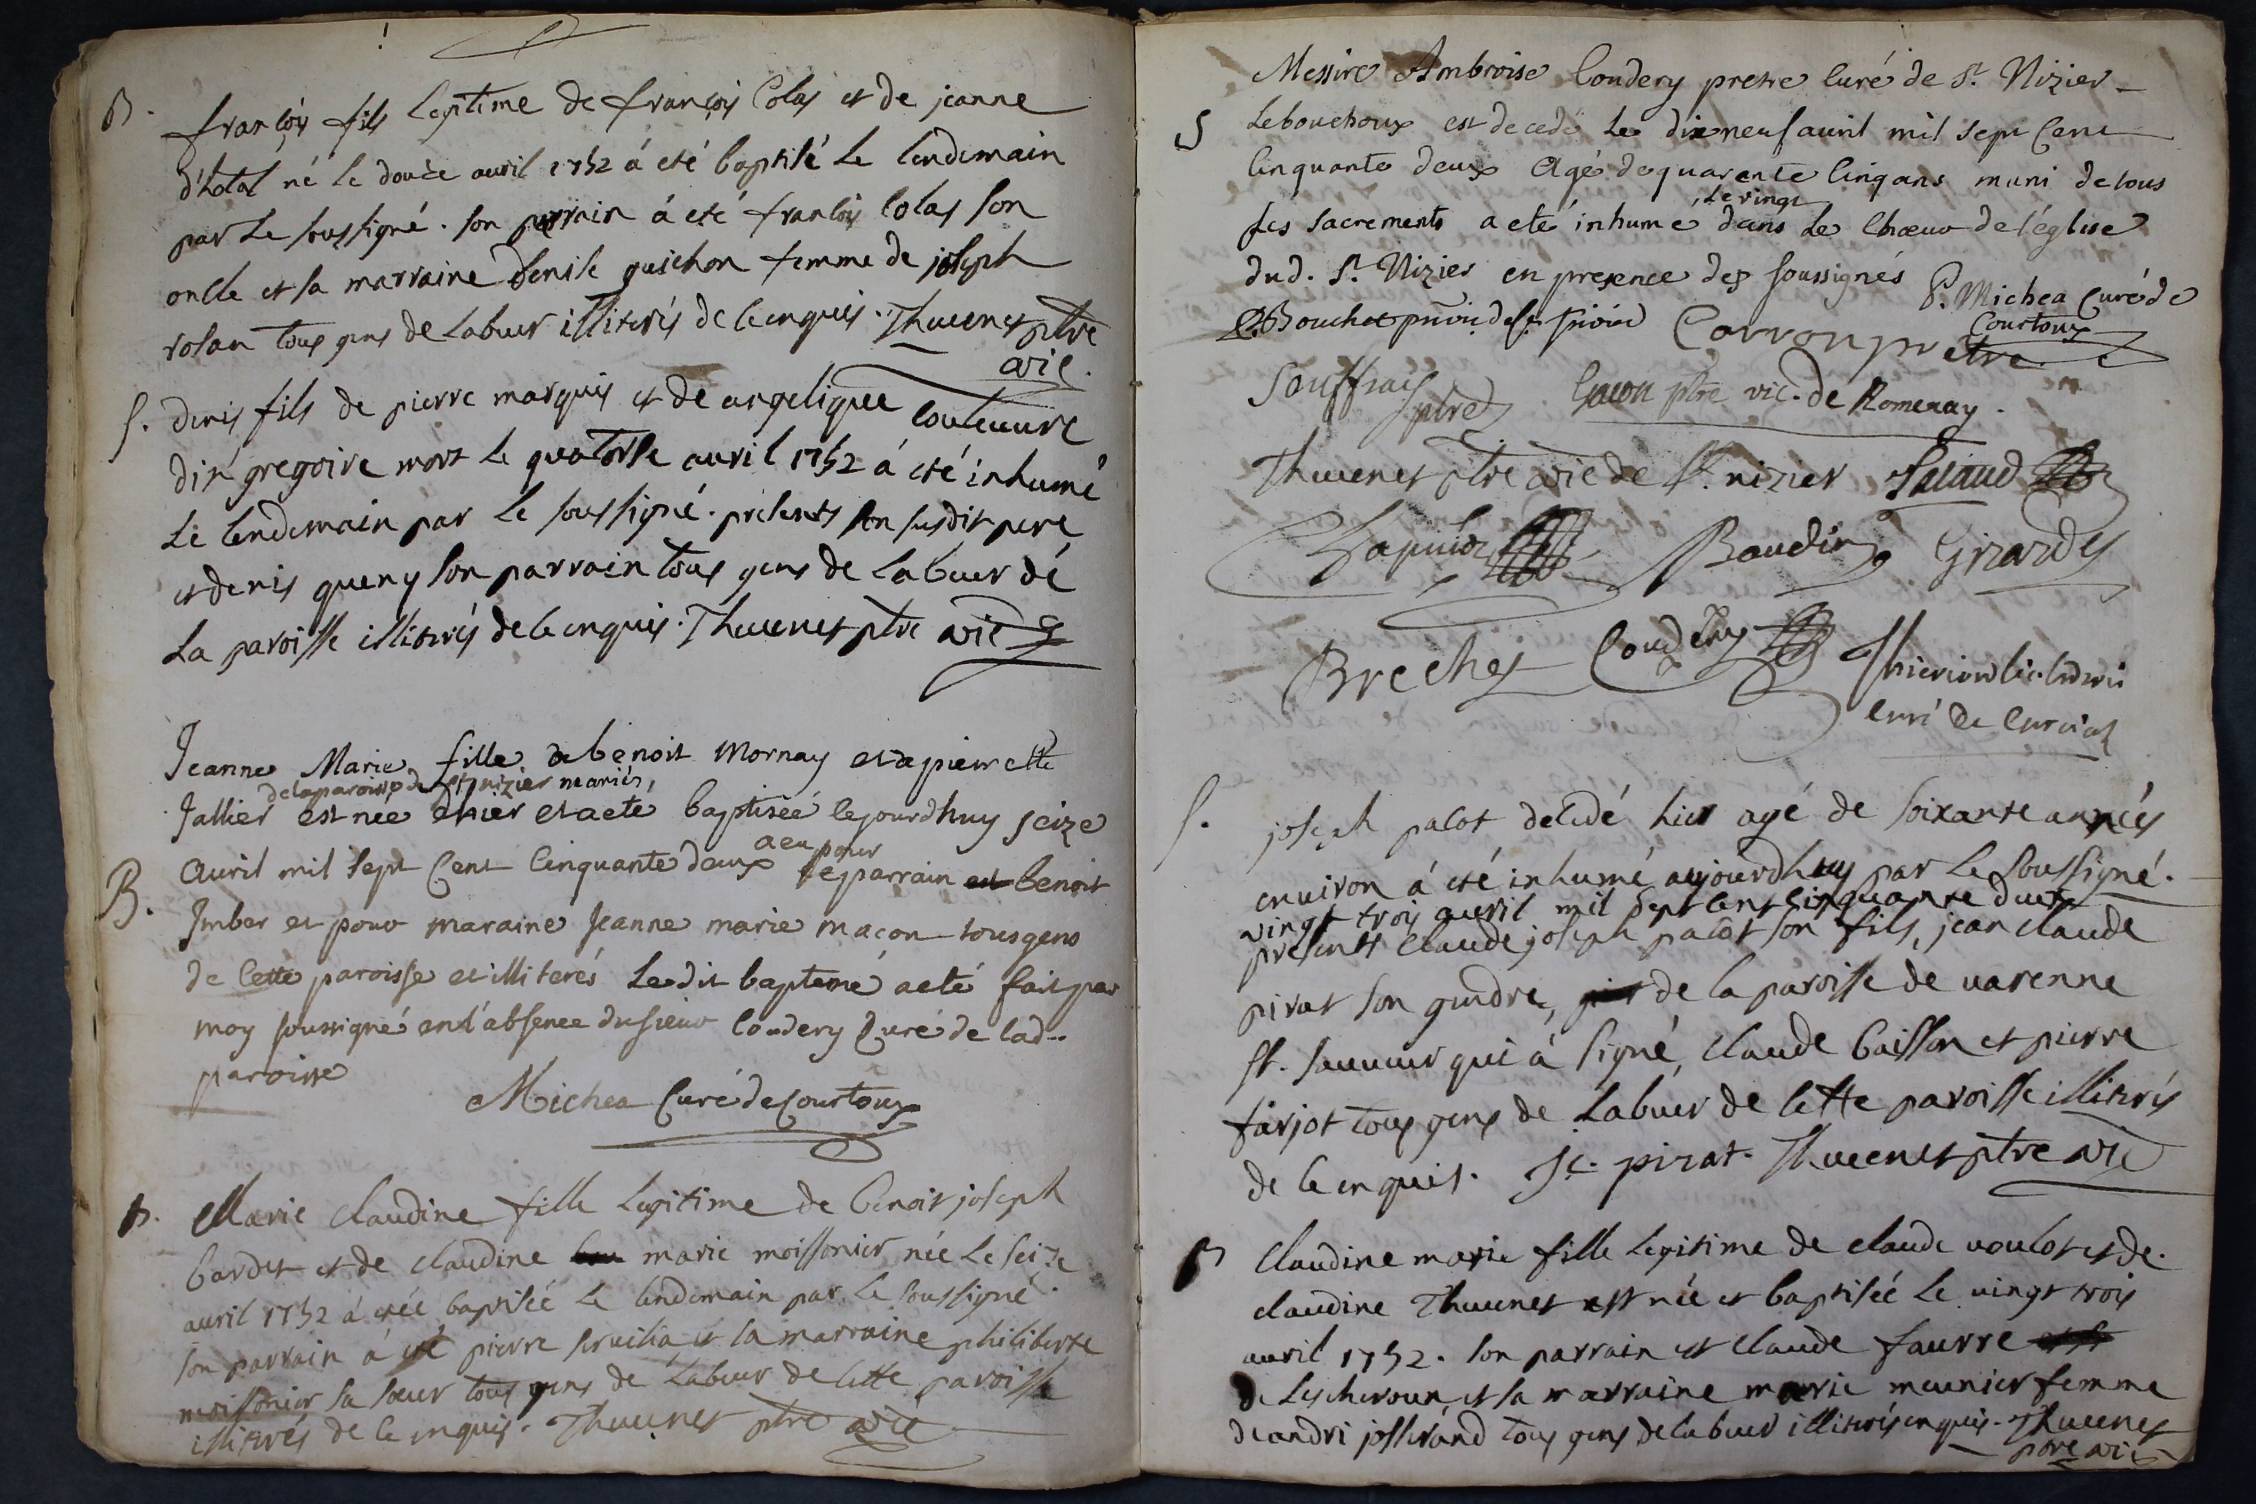 B.
françois fils legitime de françois Colas et de jeanne
d'hotal né le douze auril 1752 á eté baptisé le lendemain
par le soussigné. son parrain á eté françois Colas son
oncle et sa marraine denise guichon femme de joseph
rolan tous gens de labeur illiterés de ce enquis. Thuuenet ptre
vic.
S. denis fils de pierre marquis et de angelique Couleuure
dit gregoire mort le quatorse auril 1752 á eté inhumé
le lendemain par le soussigné. presents son susdit pere
et denis queny son parrain tous gens de labeur de
la paroisse illiterés de ce enquis. Thuuenet ptre vic
Jeanne Marie fille de benoit Mornay et de pierrette
de la paroisse de st nizier mariés,
Jallier est née hier et a eté baptisée ce jourdhuy seize
auril mil sept Cent Cinquante deux a eu pour parrain benoit
B.
Imber et pour maraine Jeanne marie macon tous gens
de Cette paroisse et illiterés Le dit bapteme a eté fait par
moy soussigné en l'absence du sieur Coudery Curé de lad..
paroisse
Michea Curé de Courtoux
B. Marie Claudine fille legitime de benoit joseph
bardet et de claudine marie moissonier née le seize
auril 1752 á etée baptiséé le lendemain par le soussigné.
son parrain á eté pierre et sa marraine philiberte
moissonier sa sœur tous gens de labeur de cette paroisse
illiterés de ce enquis. Thuuenet ptre vic
Messire Ambroise Coudery pretre Curé de St. Nizier
S
Lebouchoux est decedé Le dix neuf auril mil sept Cent
Cinquante deux Agé de quarente Cinq ans muni de tous
Le vingt
ses sacrements a eté inhumé dans Le Chœur de l'église
dud. St. Nizier en presence des soussignés P. Michea Curé de
Courtoux
Bouchet Carron pretre
Souffray ptre Guion ptre vic. de Romenay.
Thuuenet ptre vic de St. nizier
Chapuis Baudin Girardet
Brechet Coudery
Curé de Curciat
S. joseph palot decedé hier agé de soixante annéés
enuiron á eté inhumé aujourdhuy par le soussigné.
vingt trois auril mil sept cent cinquante deux
presents Claude joseph palot son fils, jean claude
pirat son gendre, de la paroisse de varenne
st. sauueur qui á signé, claude Caisson et pierre
farjot tous gens de labeur de cette paroisse illiterés
de ce enquis. Jc. pirat. Thuuenet ptre vic
B Claudine marie fille legitime de claude voulot et de
claudine Thuuenet est née et baptiséé le vingt trois
auril 1752. son parrain est claude faurre
de Lescheroux et sa marraine marie meunier femme
de andri josserand tous gens de labeur illiterés enquis. Thuuenet
ptre vic